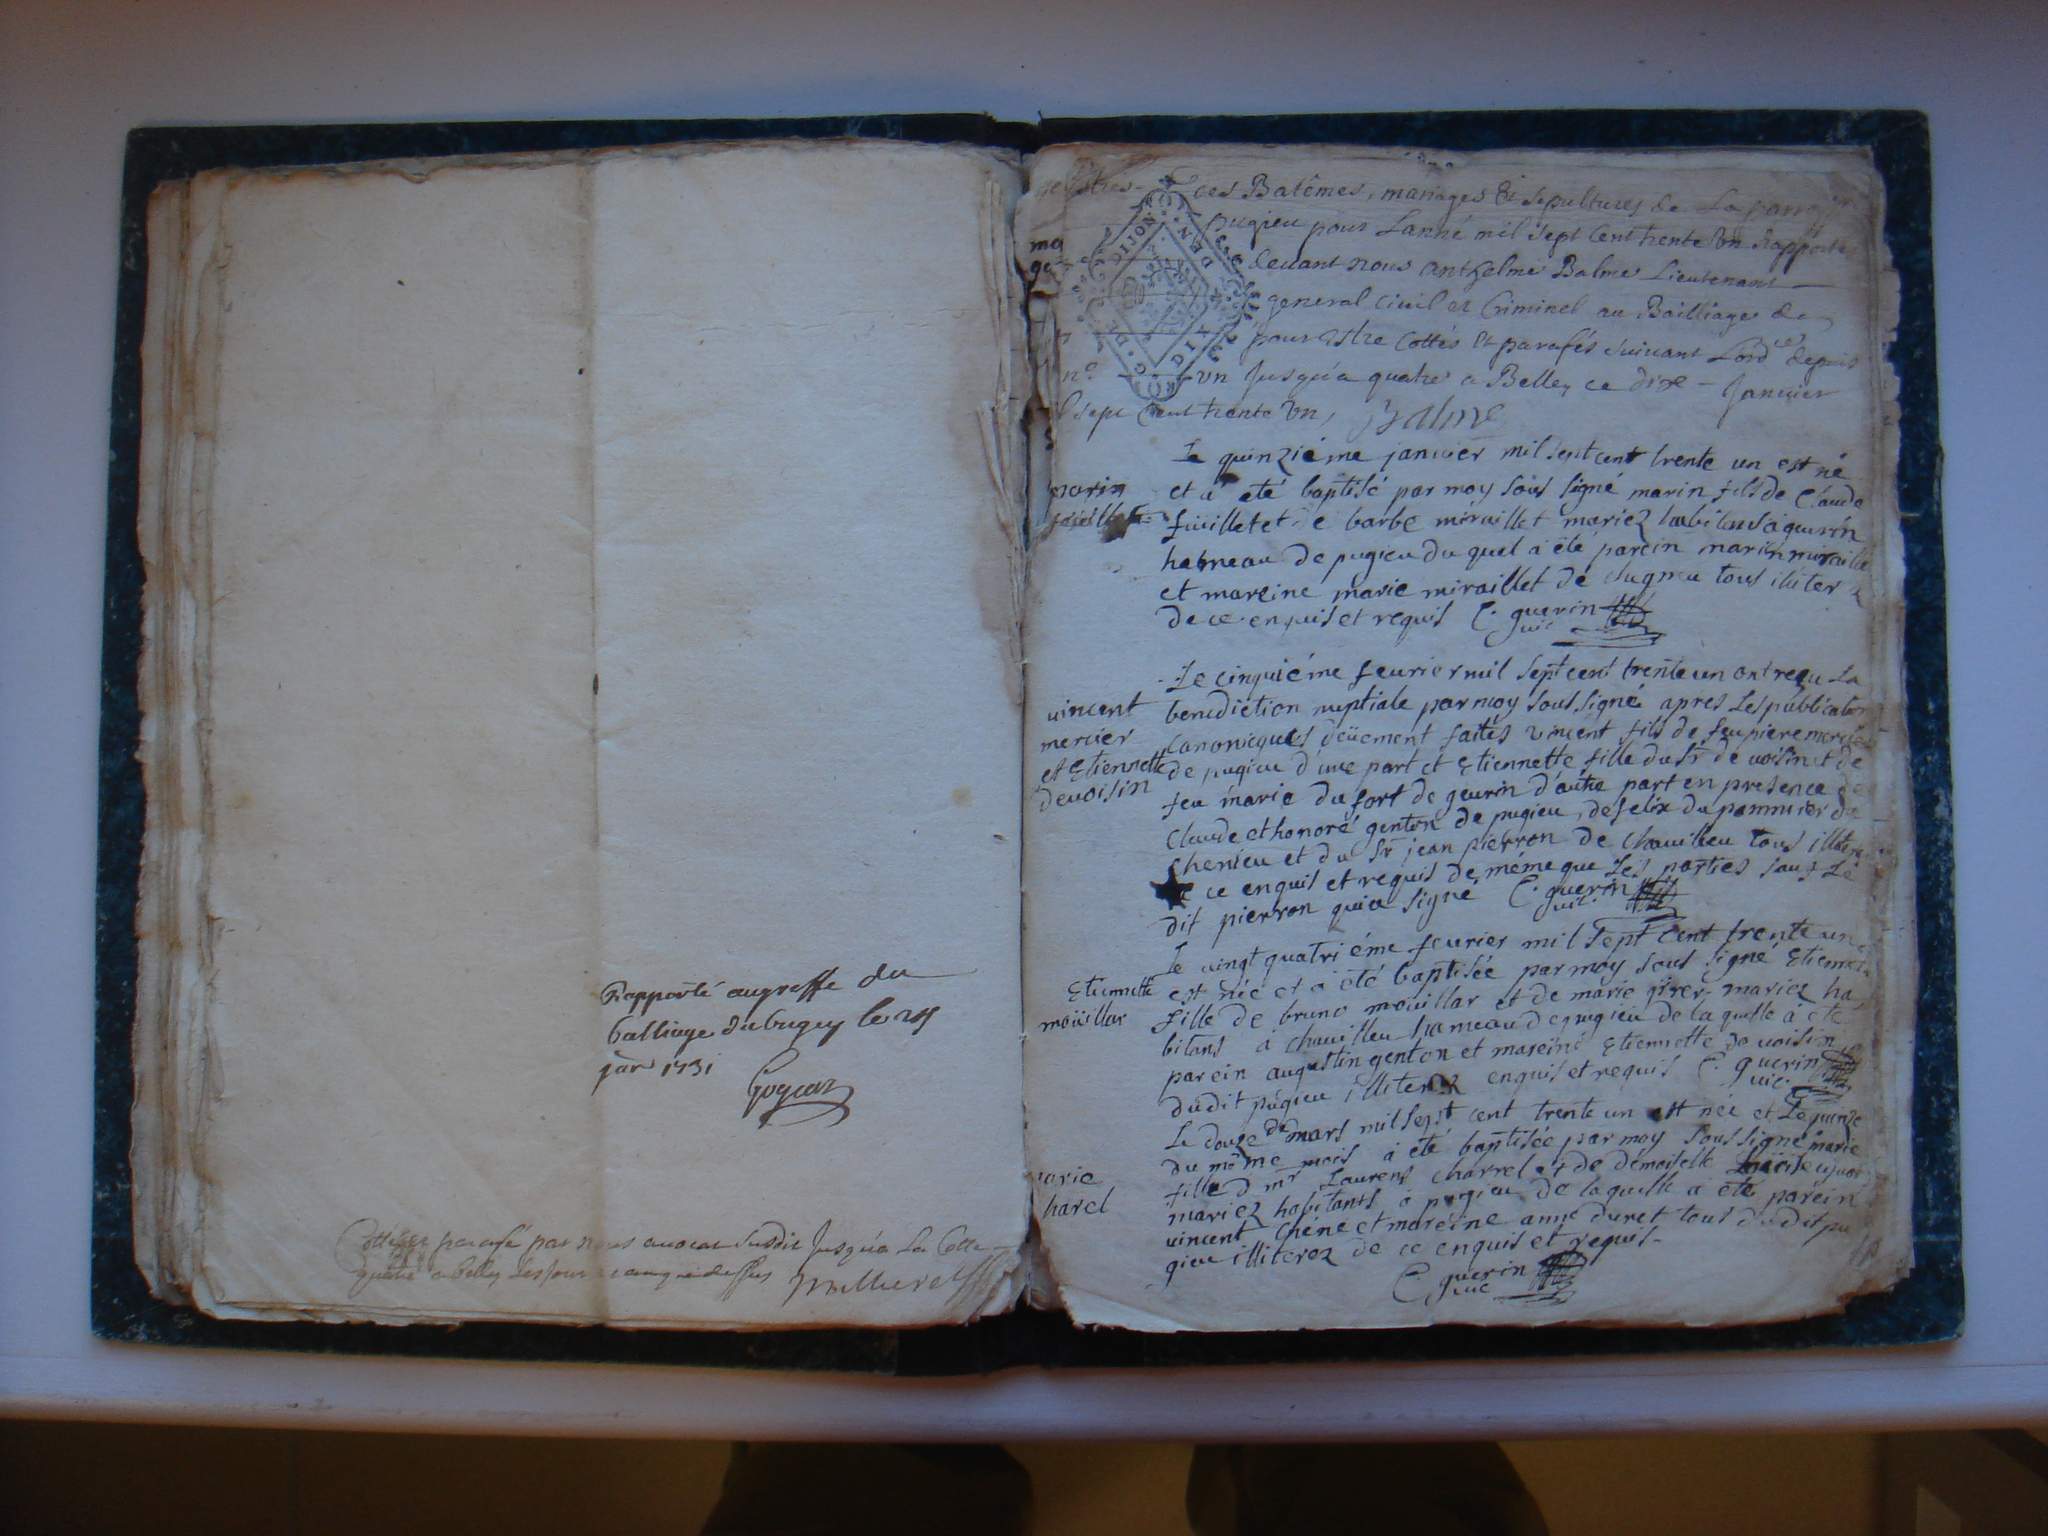 Rapporté au greffe du
balliage du bugey le
janr 1731
Goycoz
Cottés et parafé par nous avocat susdit Jusqu'a La Cotte
quatre a Belley Les jour et an que dessus
des Batêmes, mariages & sepultures de La parroisse
pugieu pour Lanné mil sept cent trente Un Rapportés
devant nous Anthelme Balme Lieutenant
general Civil et Criminel au Bailliage de
pour Estre Cottés et parafés suivant Lordce depuis
un Jusqu'a quatre a Belley ce dixe Janvier
sept Cent trente Un, Balme
marin
Le quinziéme janvier mil sept cent trente un est né
et a eté baptisé par moy sous signé marin fils de Claude
füillet et de barbe miraillet mariez habitans à gevrin
hameau de pugieu du quel a été parein marin miraillet
et mareine marie miraillet de tous iliter
de ce enquis et requis C. guerin
vic
vincent
mercier
et Etiennette
devoisin
Le cinquiéme fevrier mil sept cent trente un ont reçu La
benediction nuptiale par moy sous signé apres Les publications
canonicques deüement faites vincent fils de feu pierre mercier
de pugieu d'une part et Etiennette fille du Sr de voisin et de
feu marie du fort de gevrin d'autre part en presence de
Claude et honoré genton de pugieu, de felix du pommier de
Chenieu et du Sr jean pierron de Chavilleu tous illiterez
ce enquis et requis de méme que Les parties sauf Le
dit pierron qui a signé C. guerin
vic.
Etiennette
moüillar
Le vingt quatriéme fevrier mil sept cent trente un
est née et a été baptisée par moy sous signé Etiennette
fille de bruno moüillar et de marie mariez ha
bitans à Chavilleu hameau de pugieu de la quelle a eté
parein augustin genton et mareine Etiennette de voisin
du dit pugieu illiterez enquis et requis C. guerin
vic.
marie
harel
Le douze de mars mil sept cent trente un est née et Le quinze
du méme mois a été baptisée par moy sous signé marie
fille d mr Laurens Charrel et de démoiselle
mariez habitants à pugieu de la quelle a eté parein
vincent Chêne et mareine anne duret tous du dit pu
gieu illiterez de ce enquis et requis
C. guerin
vic